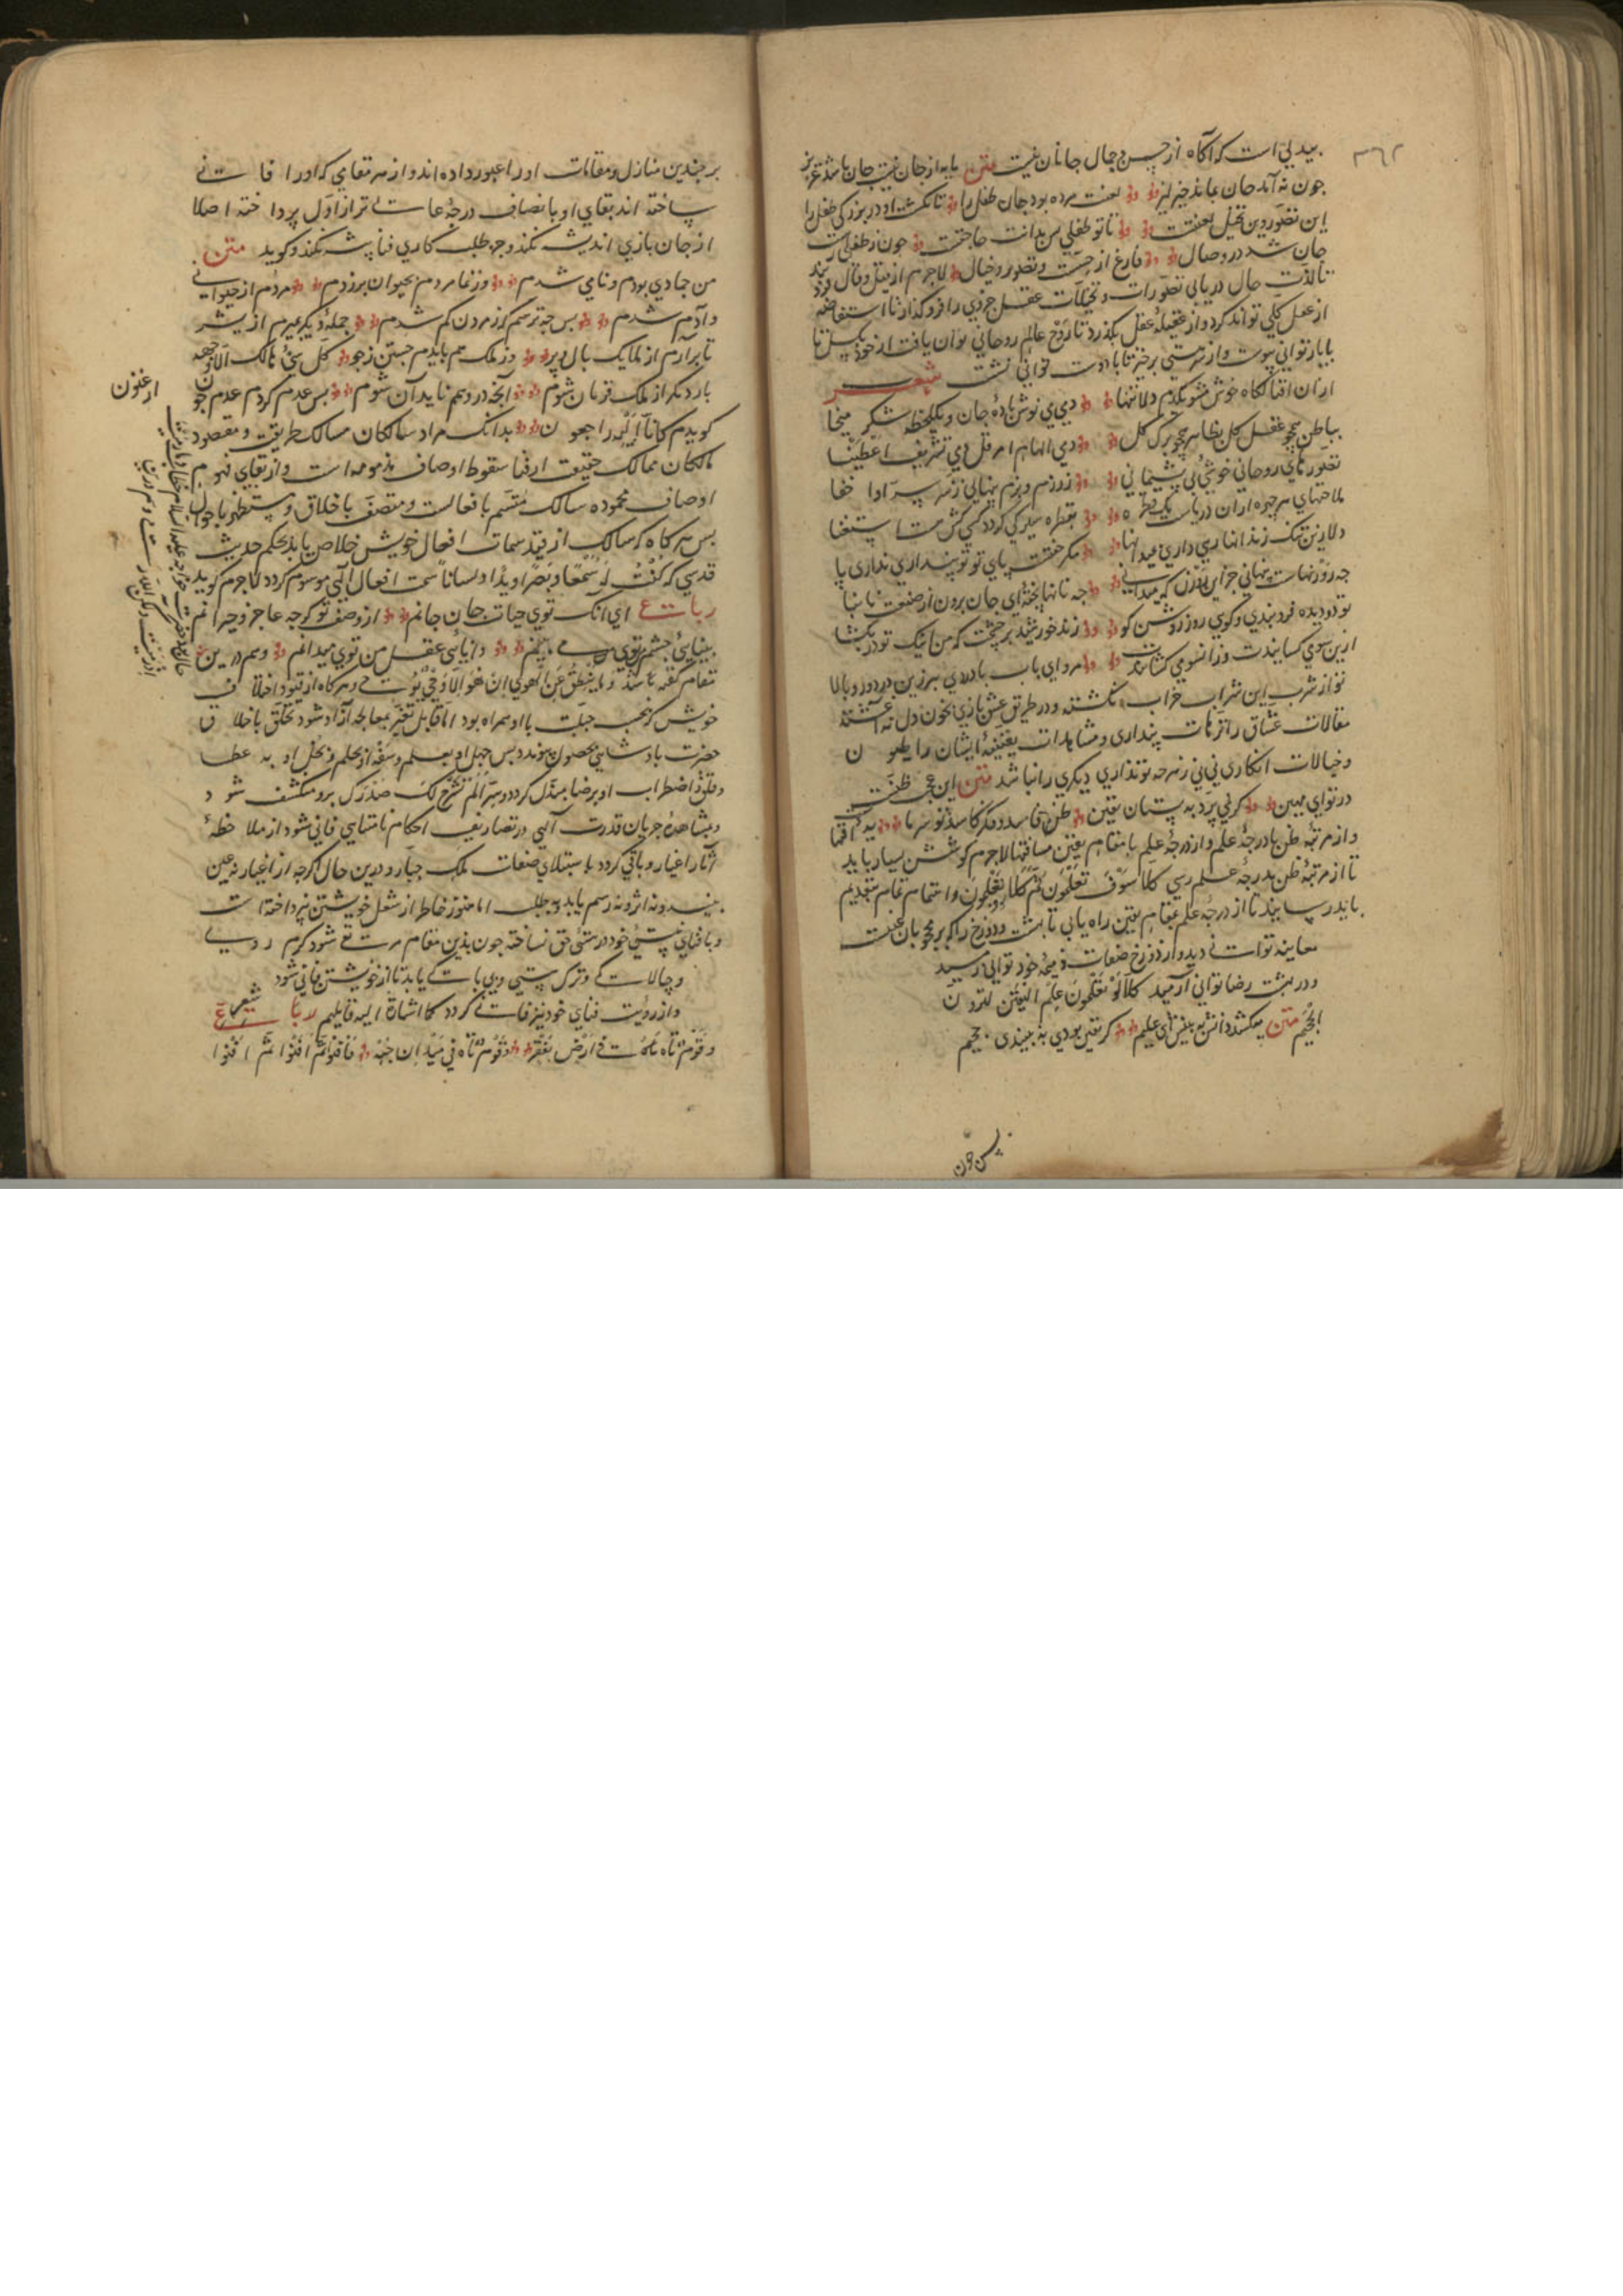 ۳۶۲
بیدلی است که آکاه از حسن و جمال جانان نیست متن مایه از جان نیست جان باشد عزیز
چون به آمد جان نماند چیز لیز لعنت مرده بود جان طفل را تا نکشت او در بزرکی طفل زا
این تصور وین تخیل لعبتست تا تو طفلی پس بدانت حاجتست چون ز طفلی رست
جان شد در وصال فارغ از حس است و تصویر و خیال لاجرم از قیل و قال فرد
تا لذت حال دریابی تصورات و تخیلات عقل جزوی را فرو کذار تا استفاضه
از عقل کلی تواند کرد و از عقیله عقل بکذرد تا روح عالم روحانی توان یافت از خود بکسل تا
با یار توانی پیوست و از سر هستی برخیز تا با دوست توانی نشست شعر
ازان اقبال کاه خوش مشو یکدم دلا تنها دمی می نوش باده جان و یکلحظه شکر میخا
بباطن همچو عقل کل بظاهر همچو برک کل دمی الهام امر قل دمی تشریف اعطینا
تصورهای روحانی خوشی بی پشیمانی ز رزم و بزم پنهانی ز سر سر او اخفا
ملاحتهای هر چهره ازان دریاست یک قطره بقطره سیر کی کردد کسی کش هست استسقا
دلا زین تنک زندانها رهی داری بمیدانها مکر خفتست پای تو تو پنداری نداری پا
چه روزیهاست پنهانی جز این روزی که میدانی چه نانها پخته ای جان برون از صنعت نانبا
تو دو دیده فروبندی و کویی روز روشن کو زند خورشید بر چشمت که من اینک تو در بکشا
ازین سوی کشانیدت وزان سوی کشانندت مرو ای ناب با دردی بپر زین درد رو بالا
تو از شرب این شراب خراب نکشته و در طریق عشق بازی بخون دل نه آغشته
مقالات عشاق را ترهات پنداری و مشاهدات یقینیه ایشان را ظنون
و خیالات انکاری نی نی ز هر چه تو نداری دیکری را نباشد متن این عجب ظنیست
در تو ای مهین کو نمی پرد به بستان یقین ظن فاسد و مکر کاسد تو سر ما
و از مرتبه ظن با درجه علم و از درجه علم با مقام یقین مسافتها لاجرم کوشش بسیار باید
تا از مرتبه ظن بدرجه علم رسی کلا سوف تعلمون ثم کلا سوف تعلمون و اهتمام تمام بتقدیم
باید رسانید تا از درجه علم بمقام یقین راه یابی تا بهشت و دوزخ را که بر محجوبان غیبست
معاینه توانی دید و از دوزخ صفات ذمیمه خود توانی رمید
و در بهشت رضا توانی آرمید کلا لو تعلمون علم الیقین لترون
الجحیم متن میکشد دانش به بینش ای علیم کر یقین بودی به بیندی جحیم
پس چون
بر چندین منازل و مقامات او را عبور داده اند و از هر مقامی که او را فانی
ساخته اند بقای او با نصاف درجه عالی تر از اول پرداخته اصلا
از جان بازی اندیشه نکند و جز طلب کاری فنا پیشه نکند و کوید متن
من جمادی بودم و نامی شدم وز نما مردم بحیوان برزدم مردم از حیوانی
و آدم شدم پس چه ترسم کز مردن کم شدم جمله دیکر بمیرم از بشر
تا برآرم از ملایک بال و پر وز ملک هم بایدم جستن ز جو کل شیء هالک الا وجهه
بار دیکر از ملک قربان شوم آنچه در وهم ناید آن شوم پس عدم کردم عدم چون
ارغنون
کویدم کانا الیه راجعون بدانک مراد سالکان مسالک طریقت و مقصود
مالکان ممالک حقیقت از فنا سقوط اوصاف مذمومه است و از بقای نهوم
اوصاف محموده سالک متسم بافعالست و متصف باخلاق و مستظهر باحوال
پس هر کاه که سالک از قید سمات افعال خویش خلاص یابد بحکم حدیث
قدسی که کنت له سمعا و بصرا و یدا و لسانا بسمت افعال الهی موسوم کردد لاجرم کوید
رباعی ای آنک توی حیات جان جانم از وصف تو کرچه عاجز و حیرانم
بینایی چشم من توی می بینم دانایی عقل من توی میدانم و هم درین
مقام کفته باشد و ما ینطق عن الهوی ان هو الا وحی یوحی و هر کاه از قیود اخلاق
خویش که بحسب جبلت با او همراه بود اما قابل تغیر بمعالجه آزاد شود تخلق باخلاق
حضرت پادشاهی بحصول پیوندد پس جهل او بعلم و سفه او بحلم و بخل او به عطا
و قلق و اضطراب او برضا مبدل کردد و سر الم نشرح لک صدرک برو منکشف شود
و بمشاهده جریان قدرت الهی در تصاریف احکام نامتناهی فانی شود از ملاحظه
آثار اغیار و باقی کردد باستیلای صفات ملک جبار و درین حال اکرچه از اغیار نه عین
بیند و نه اثر و نه رسم یابد و نه طلب اما هنوز خاطر از شغل خویشتن نپرداخته است
و با فنای هستی خود در هستی حق نساخته چون بدین مقام مرتقی شود کرم روی
و چالاکی و ترک هستی و بی باکی باید تا از خویشتن فانی شود
و از رؤیت فنای خود نیز فانی کردد کما اشارة الیه قایلهم رباعی شعر
و قوم تاه فی ارض بقفر و قوم تاه فی میدان حبه فافنوا ثم افنوا ثم افنوا